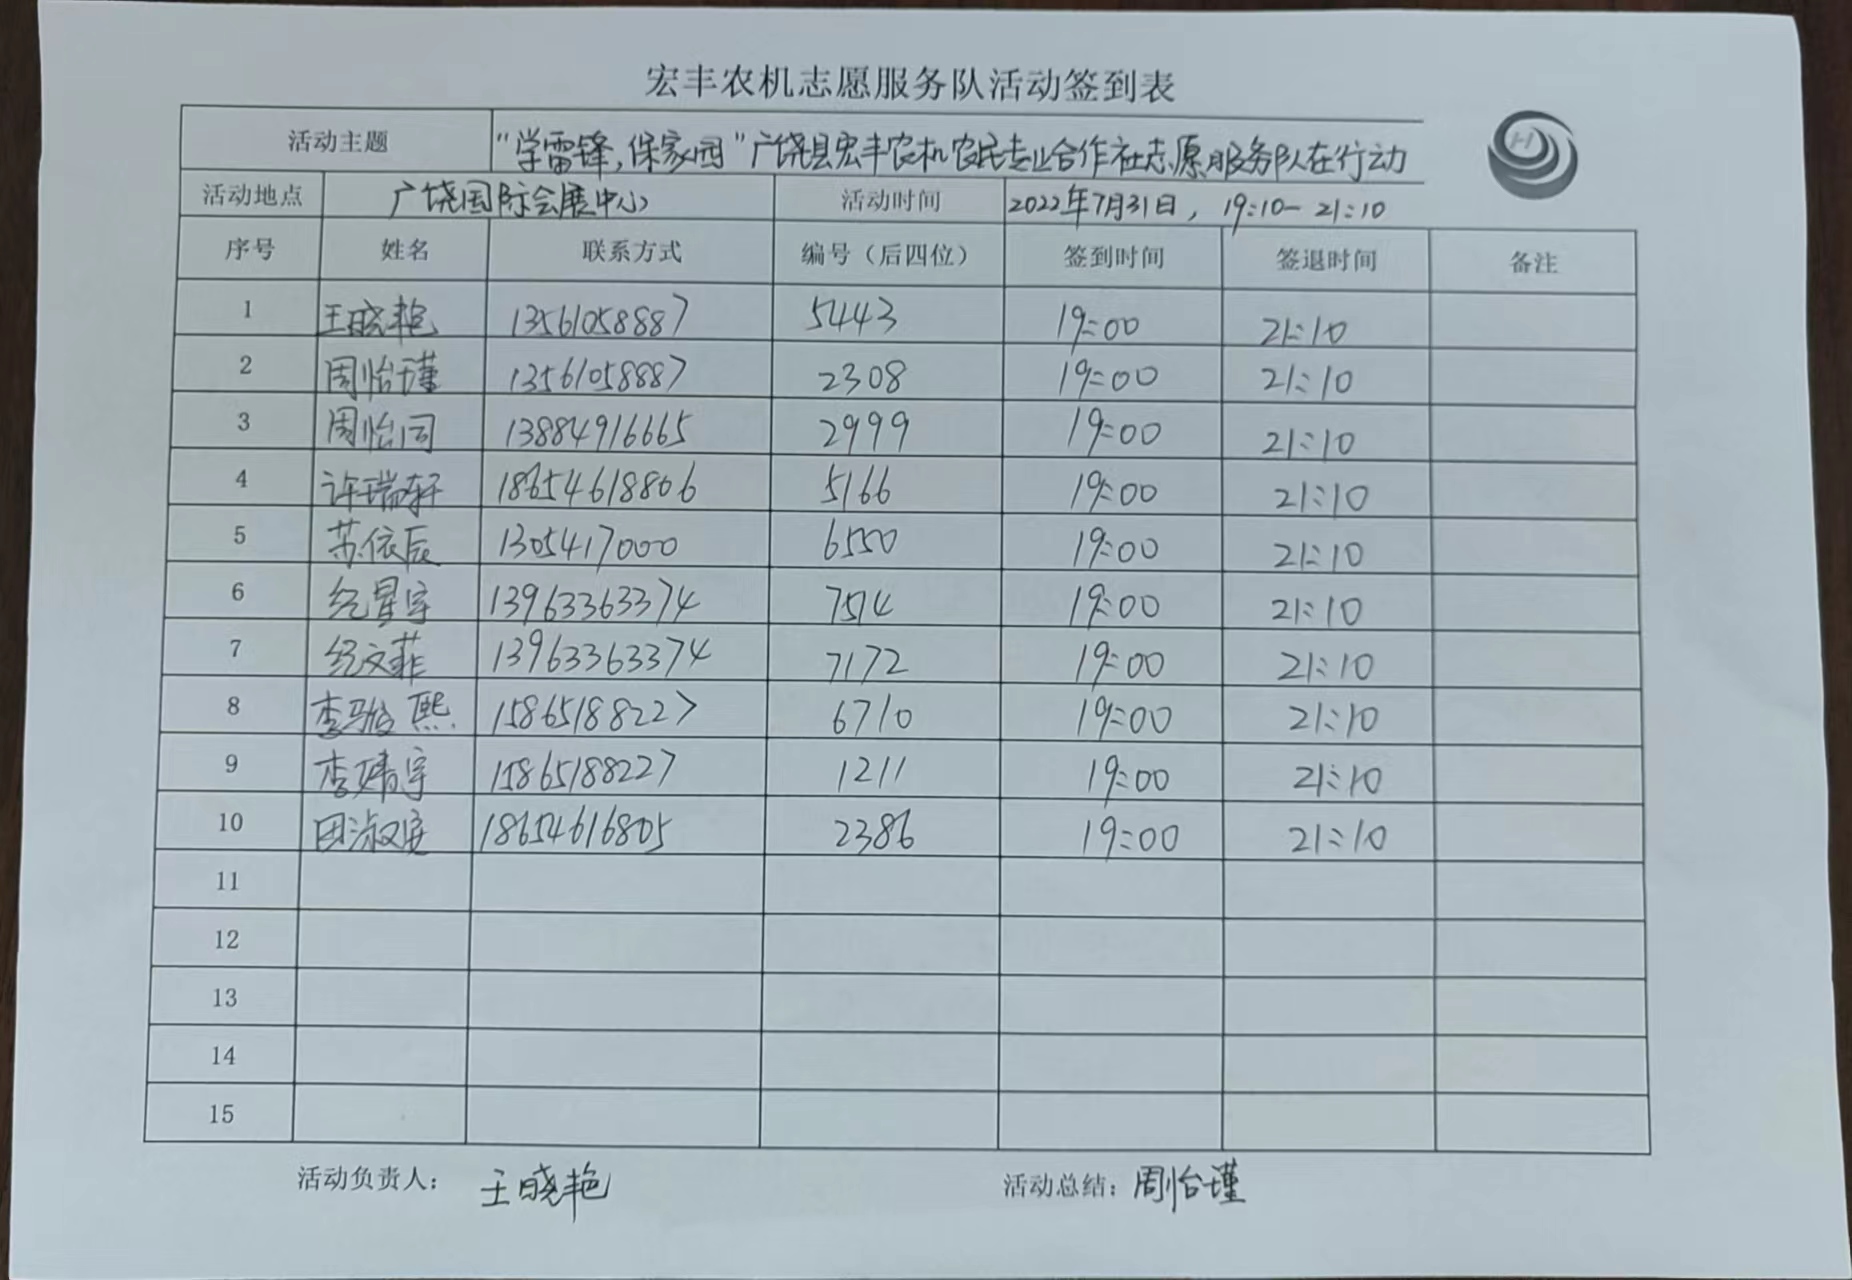 宏丰农机志愿服务队活动签到表
活动主题 "学雷锋,保家园"广饶县宏丰农机农民专业合作社志愿服务队在行动
活动地点 广饶国际会展中心 活动时间 2022年7月31日, 19:10-21:10
序号 姓名 联系方式 编号（后四位） 签到时间 签退时间 备注
1 王晓艳 13561058887 5443 19:00 21:10
2 周怡瑾 13561058887 2308 19:00 21:10
3 周怡同 13884916665 2999 19:00 21:10
4 许瑞轩 18654618806 5166 19:00 21:10
5 苏依辰 1305417000 6550 19:00 21:10
6 纪星宇 13963363374 7514 19:00 21:10
7 纪文菲 13963363374 7172 19:00 21:10
8 李骏熙 15865188227 6710 19:00 21:10
9 李婧宇 15865188227 1211 19:00 21:10
10 18654616805 2386 19:00 21:10
11
12
13
14
15
活动负责人：王晓艳 活动总结：周怡瑾